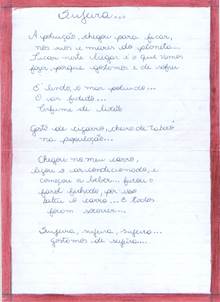 Sujeira...
A poluição, chegou para ficar,
nos rios e mares do planeta...
Ficar neste lugar é o que vamos
fazer, porque gostamos é de sofrer.
É lindo, o mar poluído...
O ar fedido...
Perfume de lixão
Gosto de cigarro, cheiro de tabaco
na população...
Chegou no meu carro,
ligou o ar condicionado, e
começou a beber...
farol fechado, por isso
bateu o carro... E todos
foram socorrer...
Sujeira, sujeira, sujeira...
gostamos de sujeira...